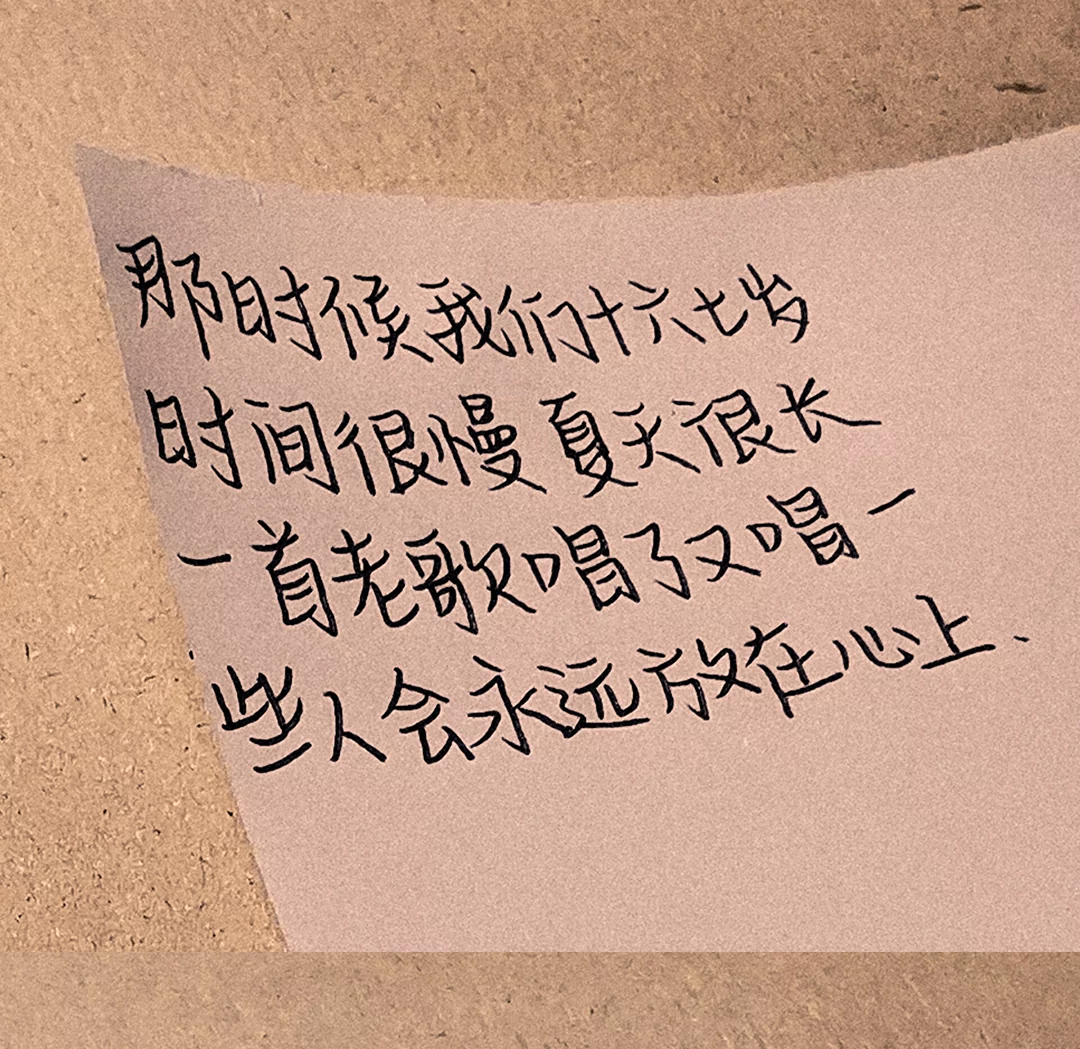 那时候我们十六七岁
时间很慢夏天很长
一首老歌唱了又唱一
些人会永远放在心上、